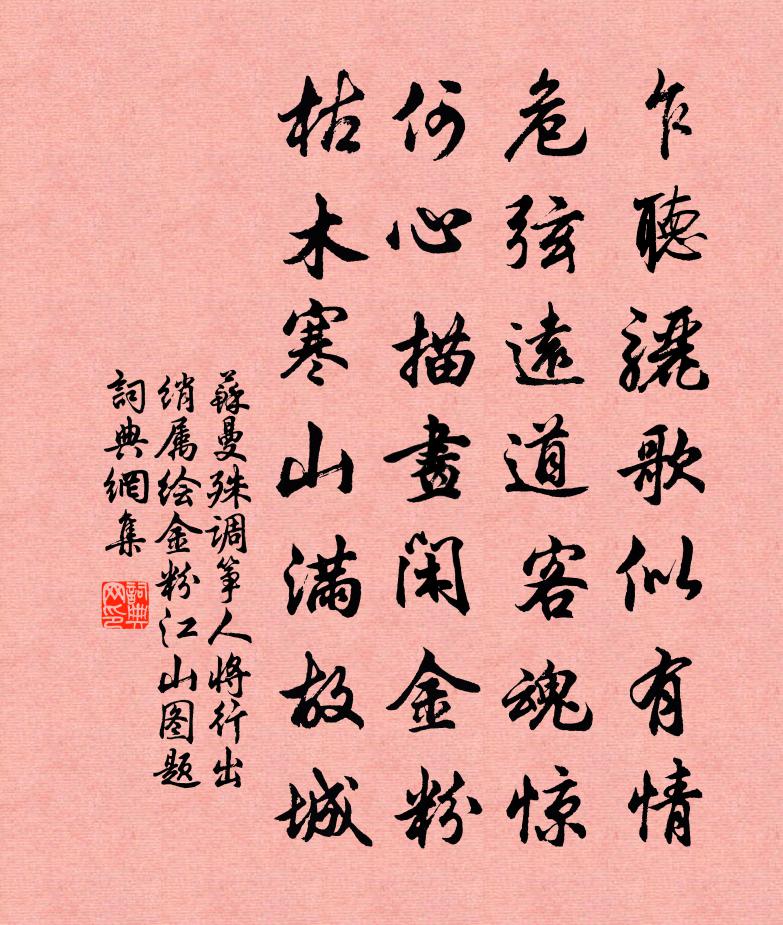 乍聽驪歌似有情
危弦遠道客魂惊
何心描畫閑金粉
枯木寒山满故城
蘇曼殊调筝人将行出
绡属绘金粉江山图题
詞典網集
詞典
网印